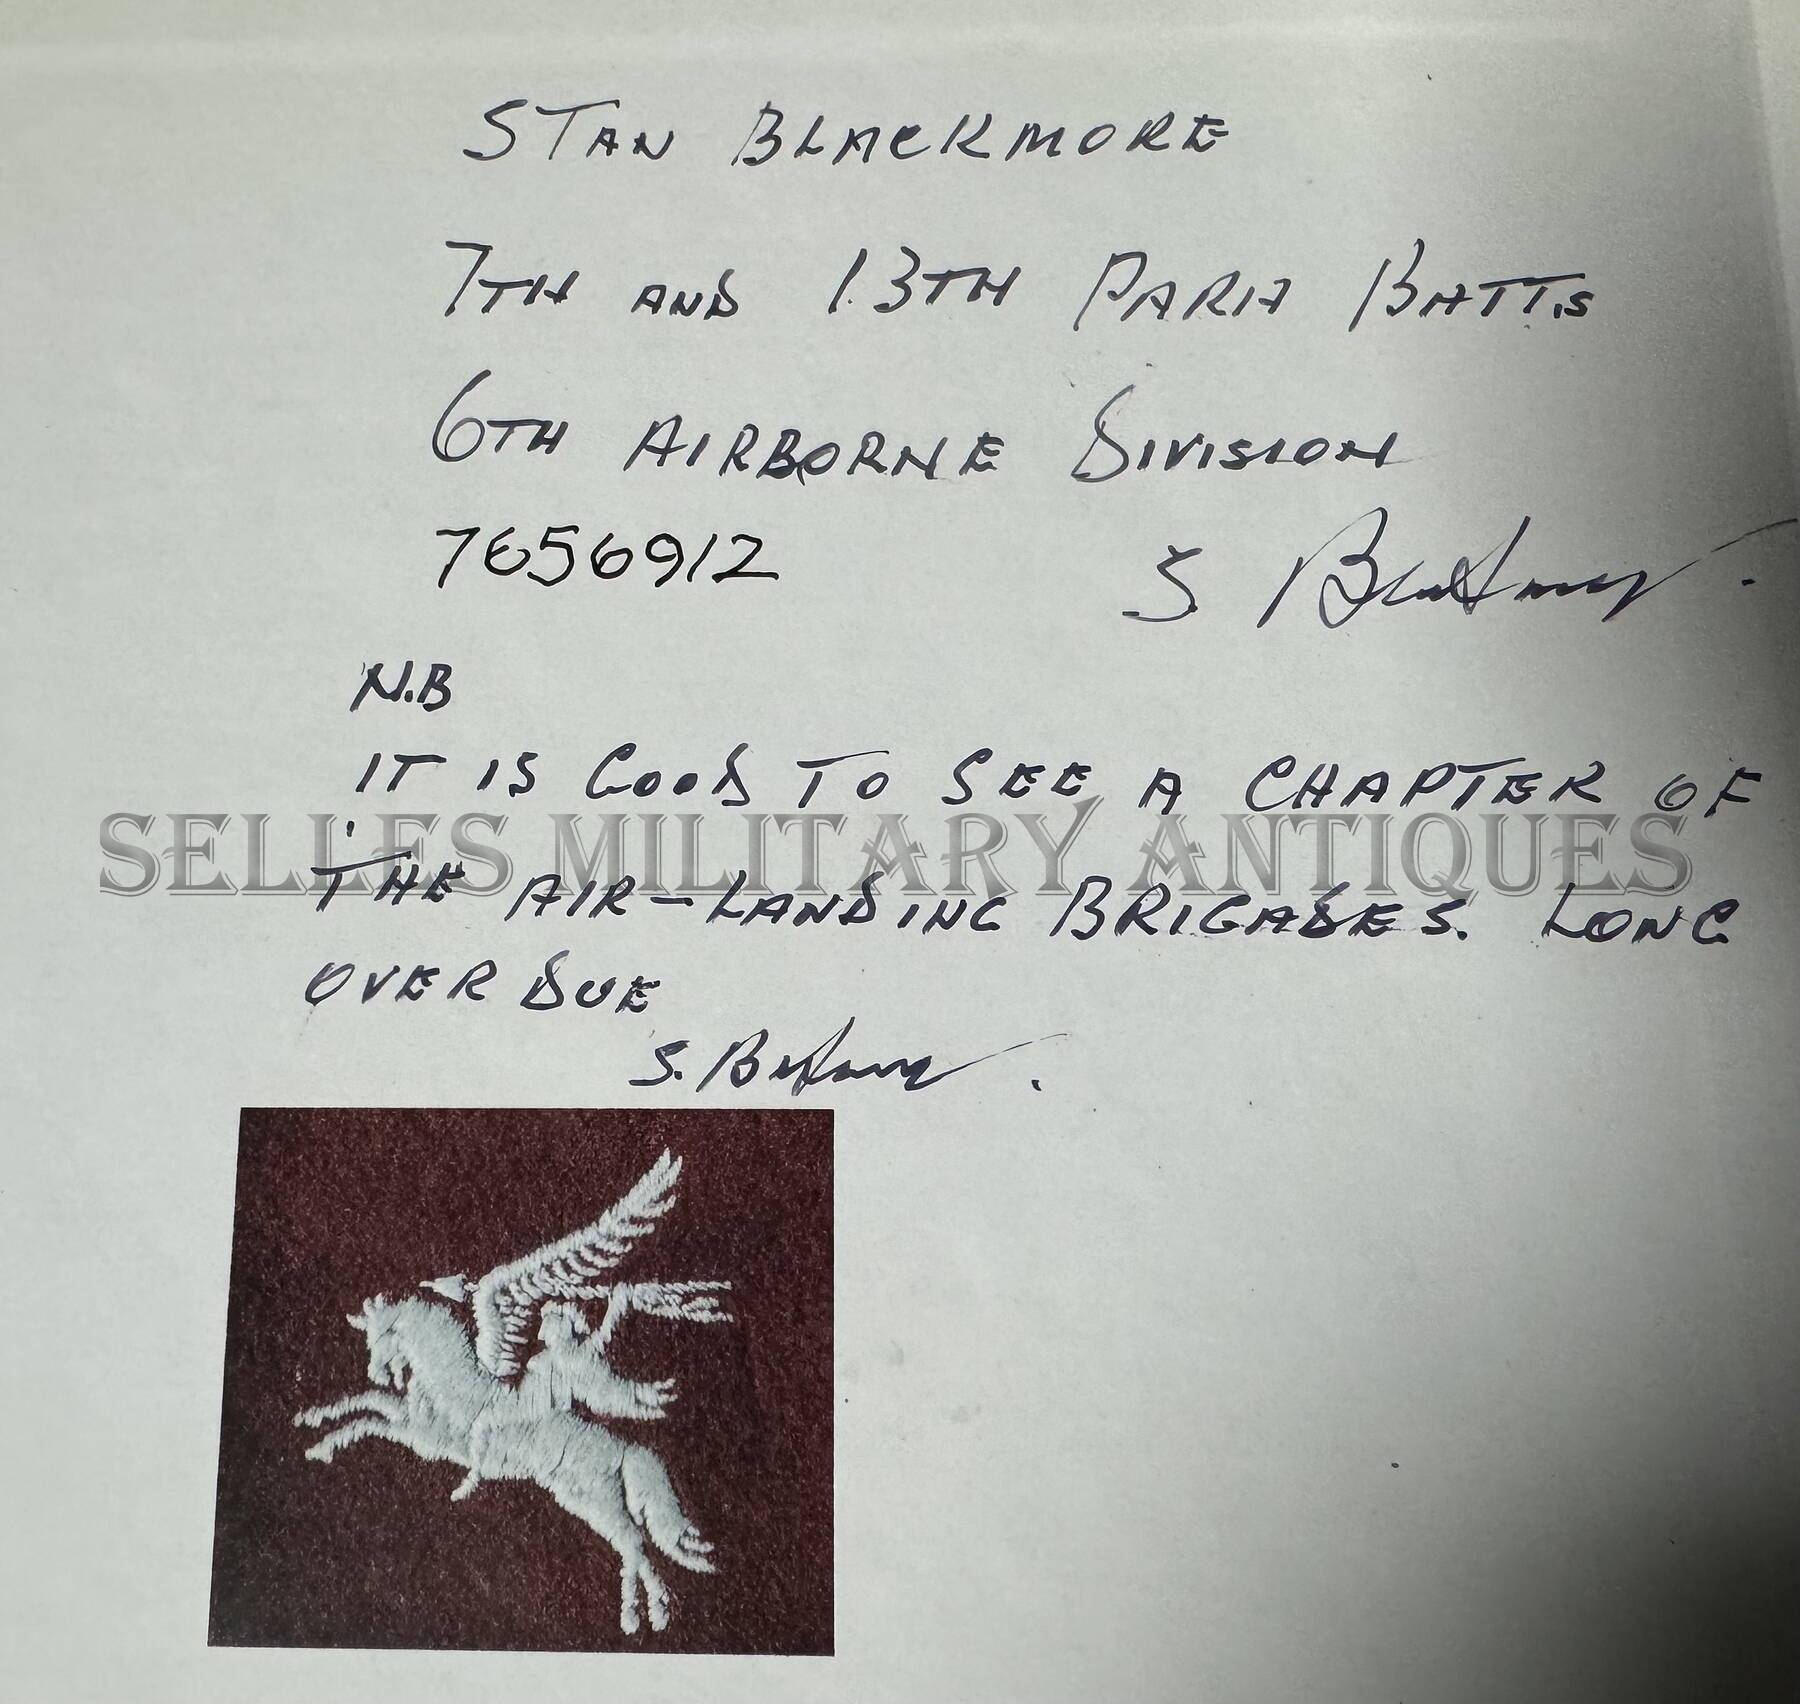 STAN BLACKMORE
7TH AND 13TH PARA BATTS
6TH AIRBORNE DIVISION
7656912
S. Blackmore.
N.B
IT IS GOOD TO SEE A CHAPTER OF
SELLES MILITARY ANTIQUES
THE AIR-LANDING BRIGADES. LONG
OVER DUE
S. Blackmore.